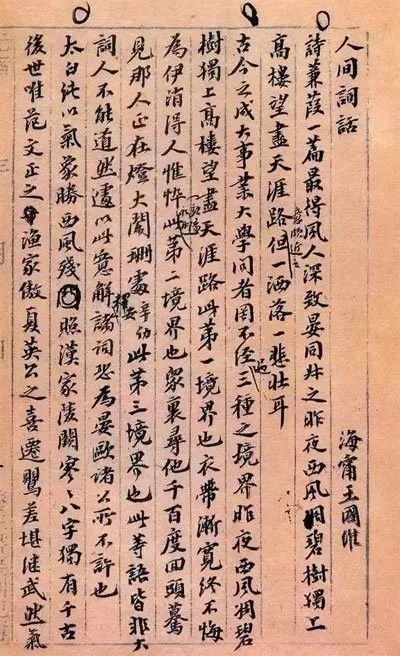 人间詞話
海甯王國維
詩蒹葭一篇最得風人深致晏同叔之昨夜西風凋碧樹獨上
高樓望盡天涯路意頗近之但一洒落一悲壯耳
古今之成大事業大學問者罔不經過三種之境界昨夜西風凋碧
樹獨上高樓望盡天涯路此第一境界也衣帶漸寬終不悔
為伊消得人憔悴此第二境界也眾裏尋他千百度回頭驀
見那人正在燈火闌珊處辛幼安此第三境界也此等語皆非大
詞人不能道然遽以此意解諸詞恐為晏歐諸公所不許也
太白純以氣象勝西風殘照漢家陵闕寥〻八字獨有千古
後世唯范文正之漁家傲夏英公之喜遷鶯差堪繼武然氣